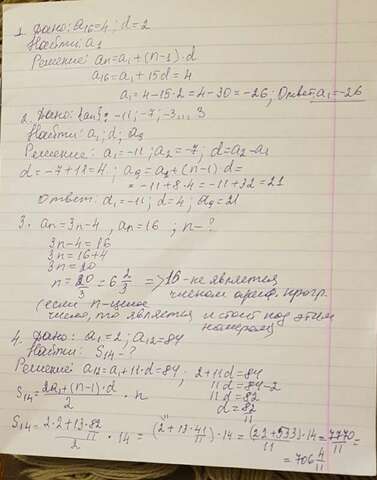 1. Дано: a₁₆=4; d=2
Найти: a₁
Решение: an=a₁+(n-1)·d
a₁₆=a₁+15d=4
a₁=4-15·2=4-30=-26; Ответ: a₁=-26
2. Дано: {an}: -11; -7; -3... 3
Найти: a₁; d; a₉
Решение: a₁=-11; a₂=-7; d=a₂-a₁
d=-7+11=4; a₉=a₁+(n-1)d=
=-11+8·4=-11+32=21
Ответ: a₁=-11; d=4; a₉=21
3. an=3n-4, an=16; n-?
3n-4=16
3n=16+4
3n=20
n=20/3=6 2/3 => 16-не является
членом ариф. прогр.
(если n-целое
число, то является и стоит под этим
номером)
4. Дано: a₁=2; a₁₂=84
Найти: S₁₄-?
Решение: a₁₂=a₁+11·d=84; 2+11d=84
11d=84-2
11d=82
d=82/11
S₁₄=2a₁+(n-1)·d/2 · n
S₁₄=2·2+13·82/11/2 · 14 = (2+13·41/11)·14=(22+533)·14/11=7770/11=
=706 4/11